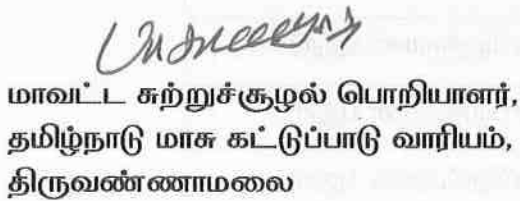 மாவட்ட சுற்றுச்சூழல் பொறியாளர்,
தமிழ்நாடு மாசு கட்டுப்பாடு வாரியம்,
திருவண்ணாமலை